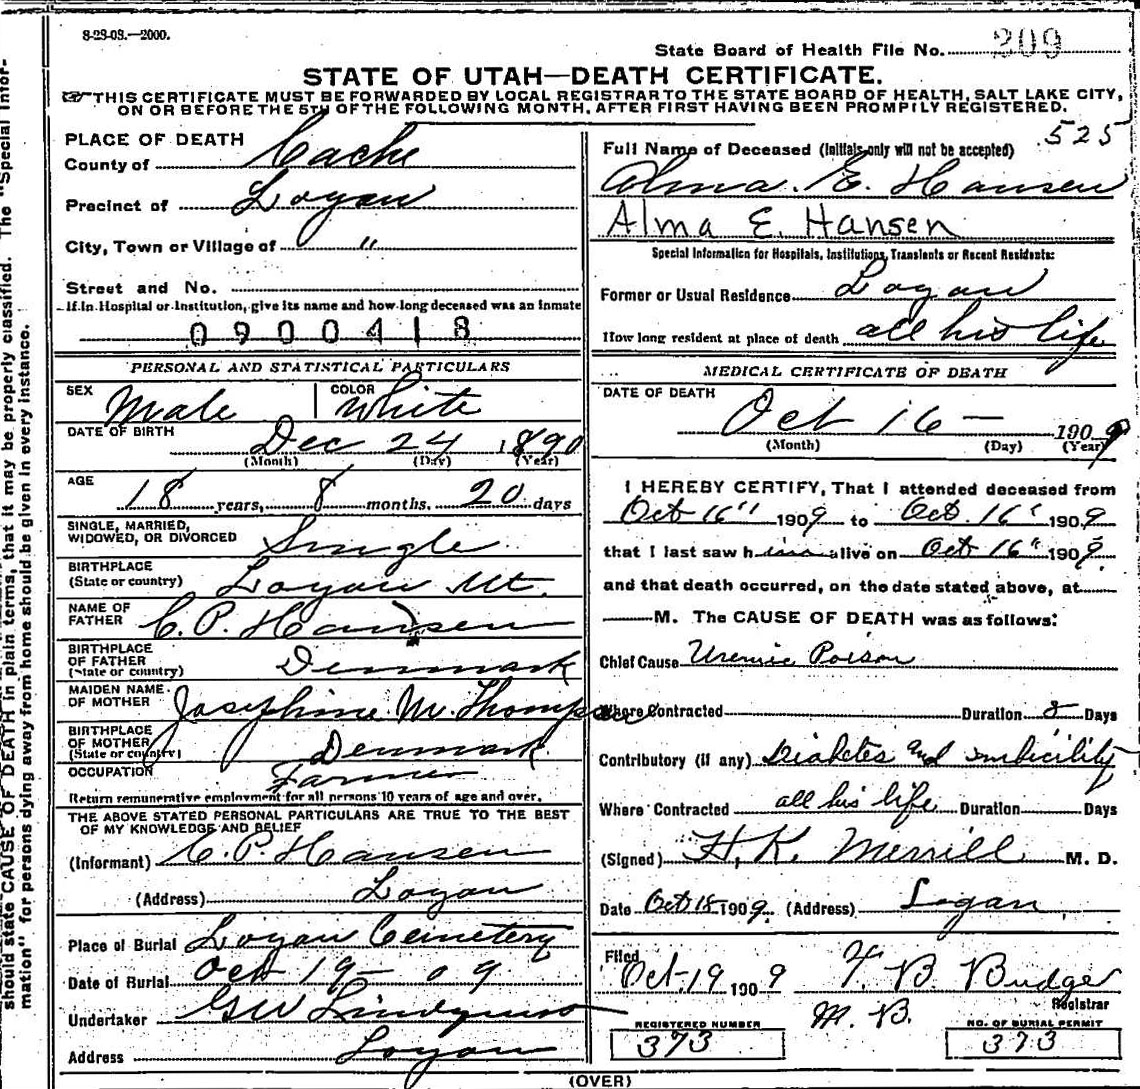 8-23-08.—2000.
State Board of Health File No. 209
STATE OF UTAH—DEATH CERTIFICATE.
THIS CERTIFICATE MUST BE FORWARDED BY LOCAL REGISTRAR TO THE STATE BOARD OF HEALTH, SALT LAKE CITY,
ON OR BEFORE THE 5TH OF THE FOLLOWING MONTH, AFTER FIRST HAVING BEEN PROMPTLY REGISTERED.
PLACE OF DEATH
County of Cache
Precinct of Logan
City, Town or Village of "
Street and No.
If in Hospital or Institution, give its name and how long deceased was an inmate
0900418
PERSONAL AND STATISTICAL PARTICULARS
SEX Male COLOR White
DATE OF BIRTH Dec 24 1890
(Month) (Day) (Year)
AGE 18 years, 8 months. 20 days
SINGLE, MARRIED,
WIDOWED, OR DIVORCED Single
BIRTHPLACE
(State or country) Logan Ut.
NAME OF
FATHER C. P. Hansen
BIRTHPLACE
OF FATHER
(State or country) Denmark
MAIDEN NAME
OF MOTHER Josephine M. Thompson
BIRTHPLACE
OF MOTHER
(State or country) Denmark.
OCCUPATION Farmer
Return remunerative employment for all persons 10 years of age and over.
THE ABOVE STATED PERSONAL PARTICULARS ARE TRUE TO THE BEST
OF MY KNOWLEDGE AND BELIEF
(Informant) C. P. Hansen
(Address) Logan
Place of Burial Logan Cemetery
Date of Burial Oct 19 - 09
Undertaker GW Lindquist
Address Logan
525
Full Name of Deceased (Initials only will not be accepted)
Alma. E. Hansen
Alma E. Hansen
Special Information for Hospitals, Institutions, Transients or Recent Residents:
Former or Usual Residence Logan
How long resident at place of death all his life
MEDICAL CERTIFICATE OF DEATH
DATE OF DEATH
Oct 16 — 1909
(Month) (Day) (Year)
I HEREBY CERTIFY, That I attended deceased from
Oct 16" 1909 to Oct. 16" 1909
that I last saw him alive on Oct 16" 1909
and that death occurred, on the date stated above, at
M. The CAUSE OF DEATH was as follows:
Chief Cause Uremic Poison
Where Contracted Duration 8 Days
Contributory (if any) Diabetes and imbicility
Where Contracted all his life Duration Days
(Signed) H. K. Merrill M. D.
Date Oct 18 1909. (Address) Logan
Filed
Oct-19 1909 T. B. Budge
Registrar
M. B.
REGISTERED NUMBER
373
NO. OF BURIAL PERMIT
373
(OVER)
should state CAUSE OF DEATH in plain terms, that it may be properly classified. The "Special Infor-
mation" for persons dying away from home should be given in every instance.